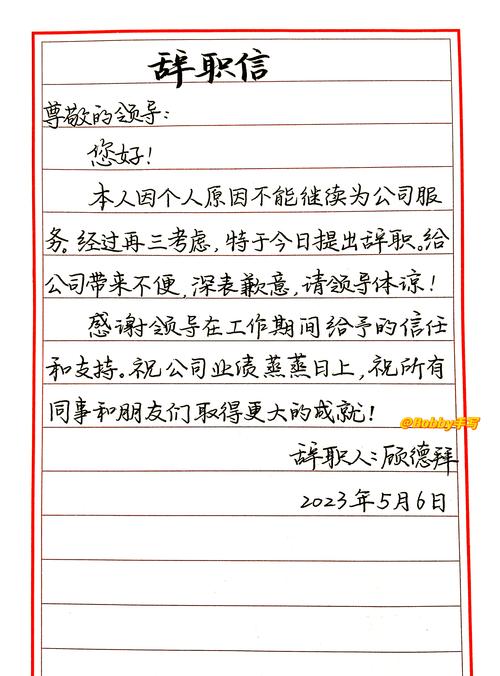 辞职信
尊敬的领导:
您好!
本人因个人原因不能继续为公司服
务。经过再三考虑,特于今日提出辞职。给
公司带来不便,深表歉意,请领导体谅!
感谢领导在工作期间给予的信任
和支持。祝公司业绩蒸蒸日上,祝所有
同事和朋友们取得更大的成就!
@Bobby手写
辞职人:顾德拜
2023年5月6日